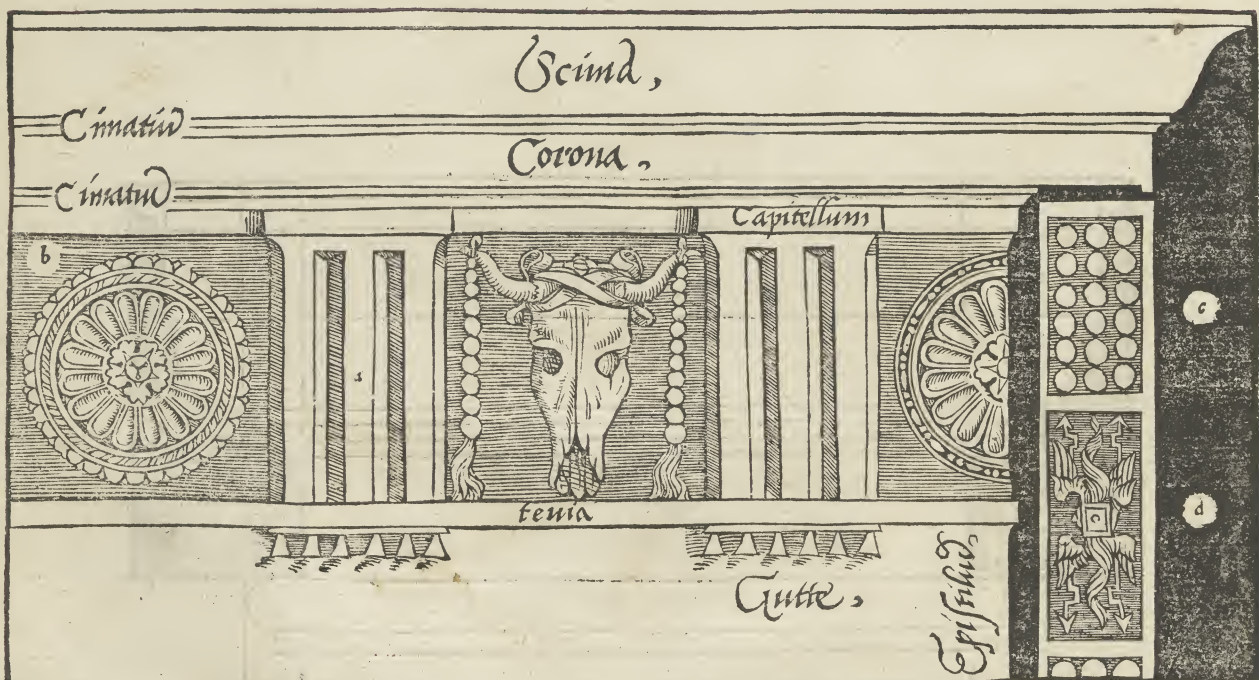 Scima,
Cimatiū
Corona,
Cimatiū
Capitellum
b
a
c
tenia
d
c
Gutte,
Epistiliū,